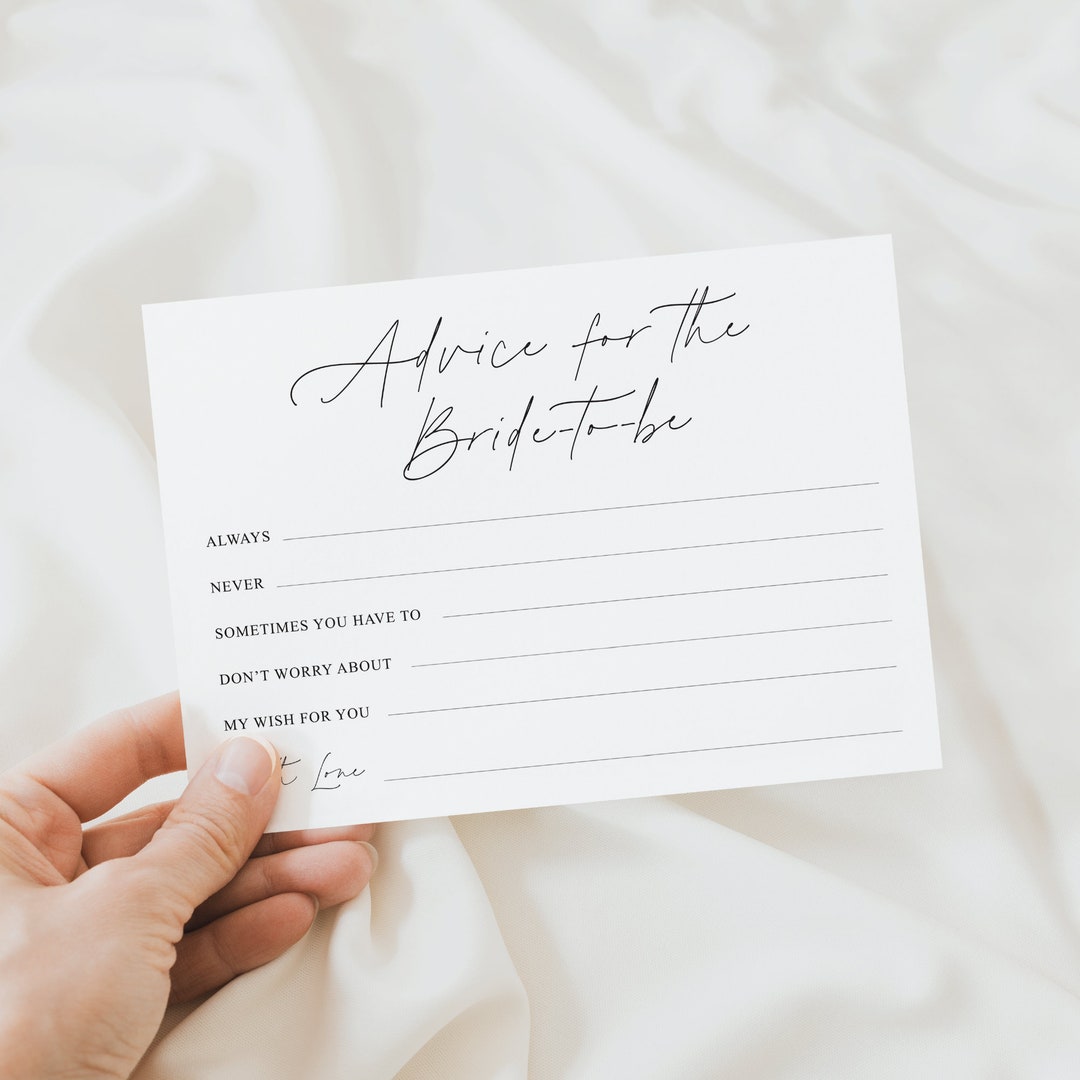 Advice for the
Bride-to-be
ALWAYS
NEVER
SOMETIMES YOU HAVE TO
DON'T WORRY ABOUT
MY WISH FOR YOU
Love